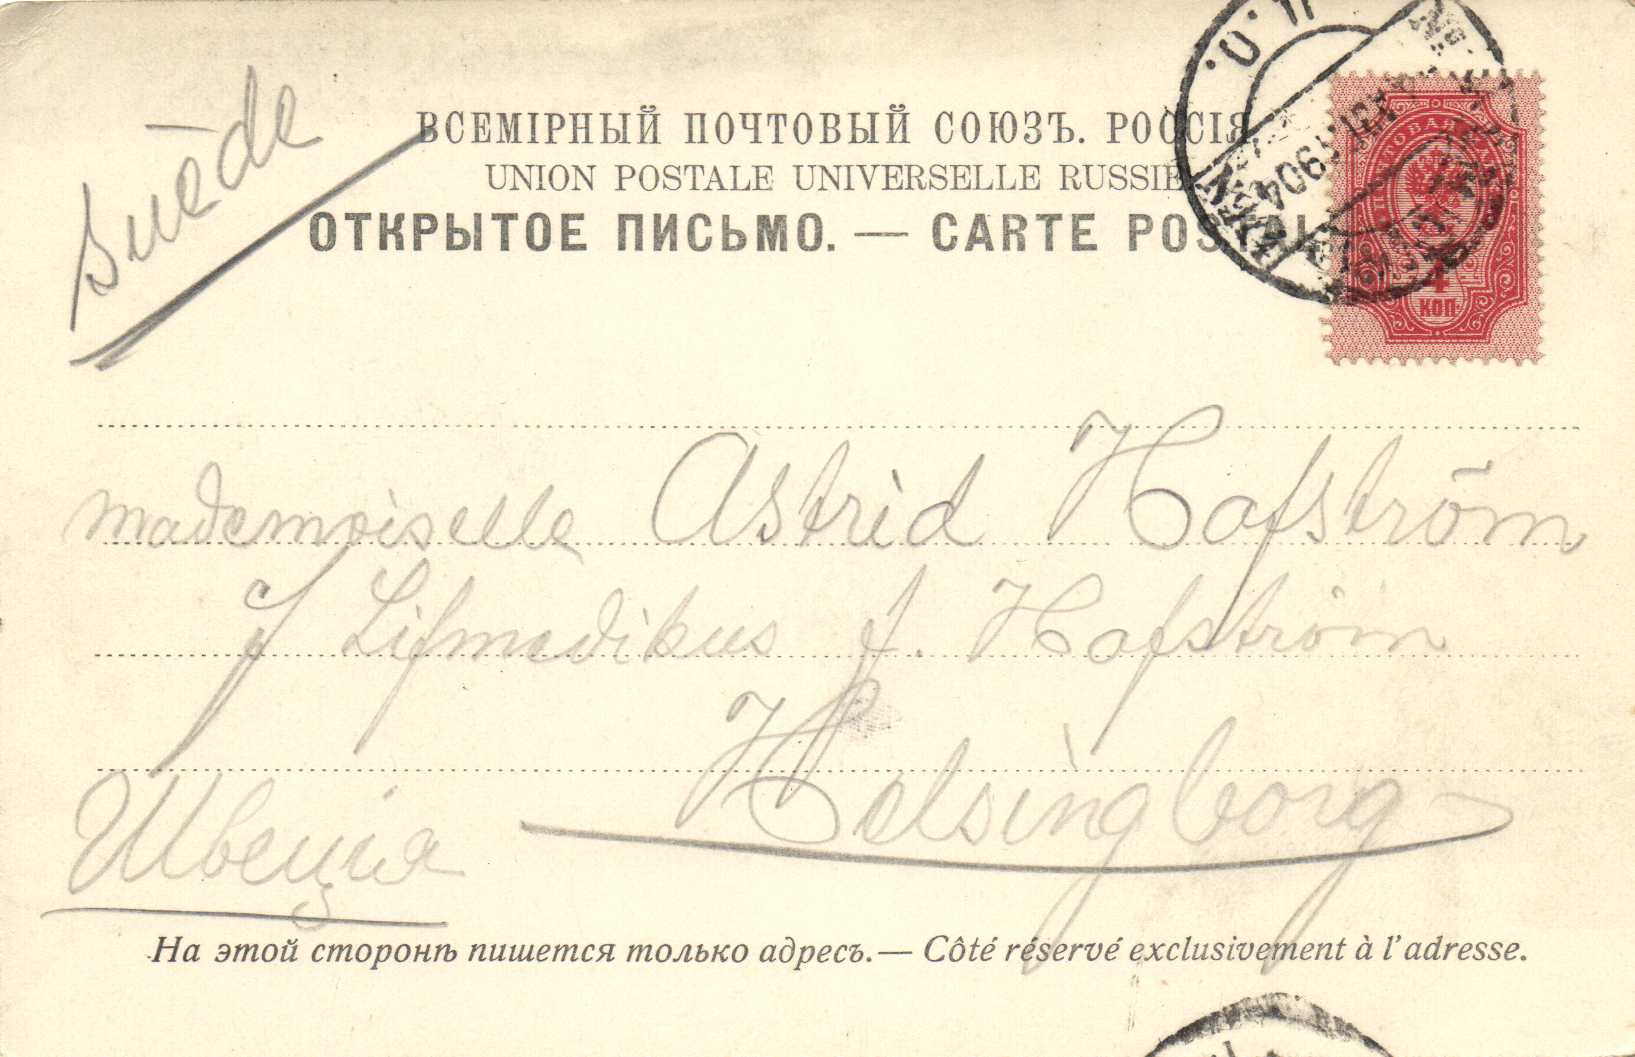 Suède
ВСЕМІРНЫЙ ПОЧТОВЫЙ СОЮЗЪ. РОССІЯ
UNION POSTALE UNIVERSELLE RUSSIE
ОТКРЫТОЕ ПИСЬМО. — CARTE POSTALE
1904
4
КОП.
mademoiselle Astrid Hafström
Lifmedikus f. Hafström
Helsingborg
Швеція
На этой сторонѣ пишется только адресъ. — Côté réservé exclusivement à l'adresse.